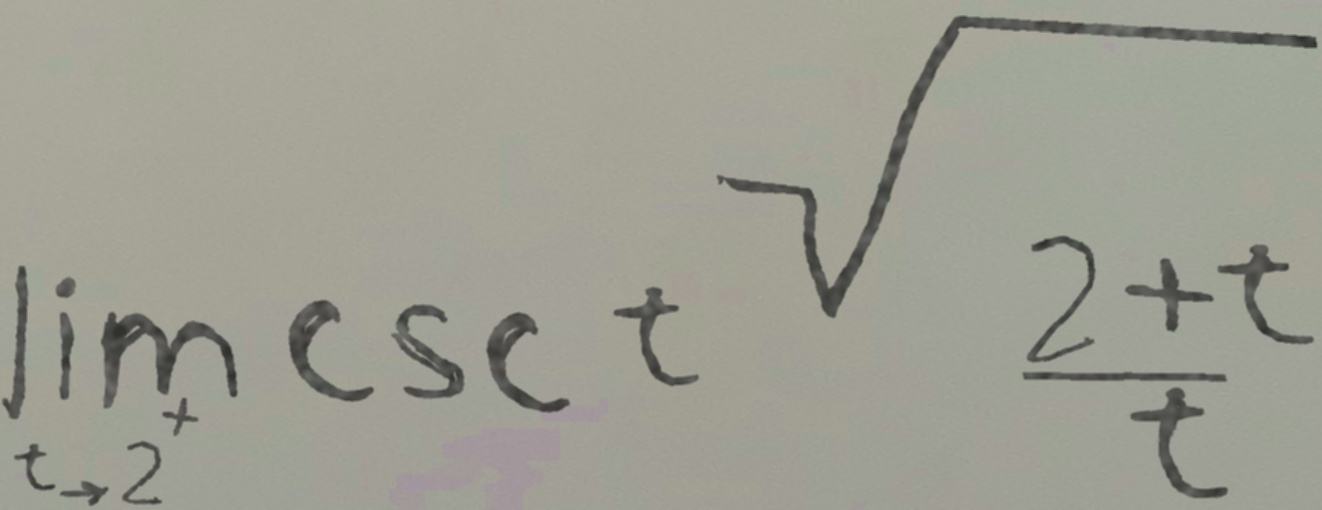 \lim_{t \to 2^+} \csc t \sqrt{\frac{2+t}{t}}